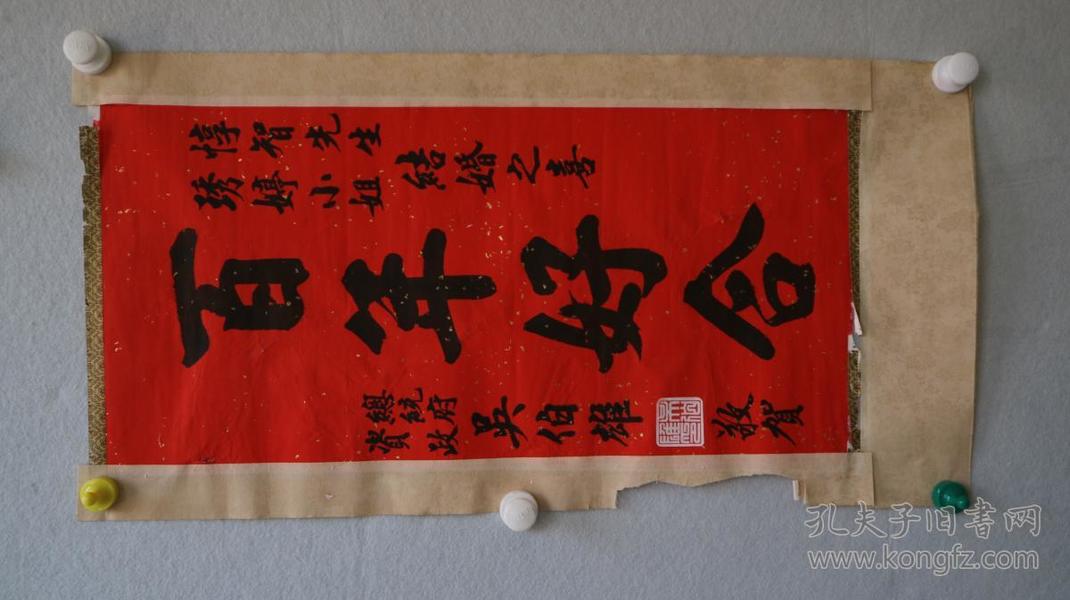 惇智先生
琇婷小姐
結婚之喜
百年好合
總統府
資政
吳伯雄
敬賀
孔夫子旧書网
www.kongfz.com